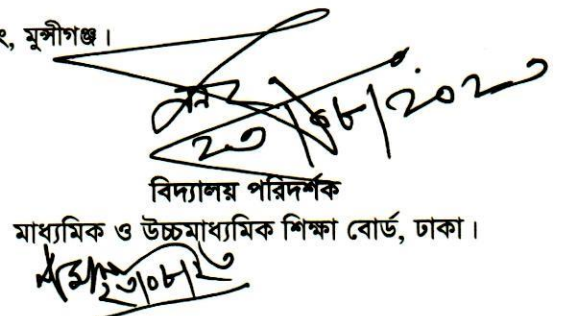 ং, মুন্সীগঞ্জ।
২৩/০৮/২০২৩
বিদ্যালয় পরিদর্শক
মাধ্যমিক ও উচ্চমাধ্যমিক শিক্ষা বোর্ড, ঢাকা।
২৩/০৮/২৩